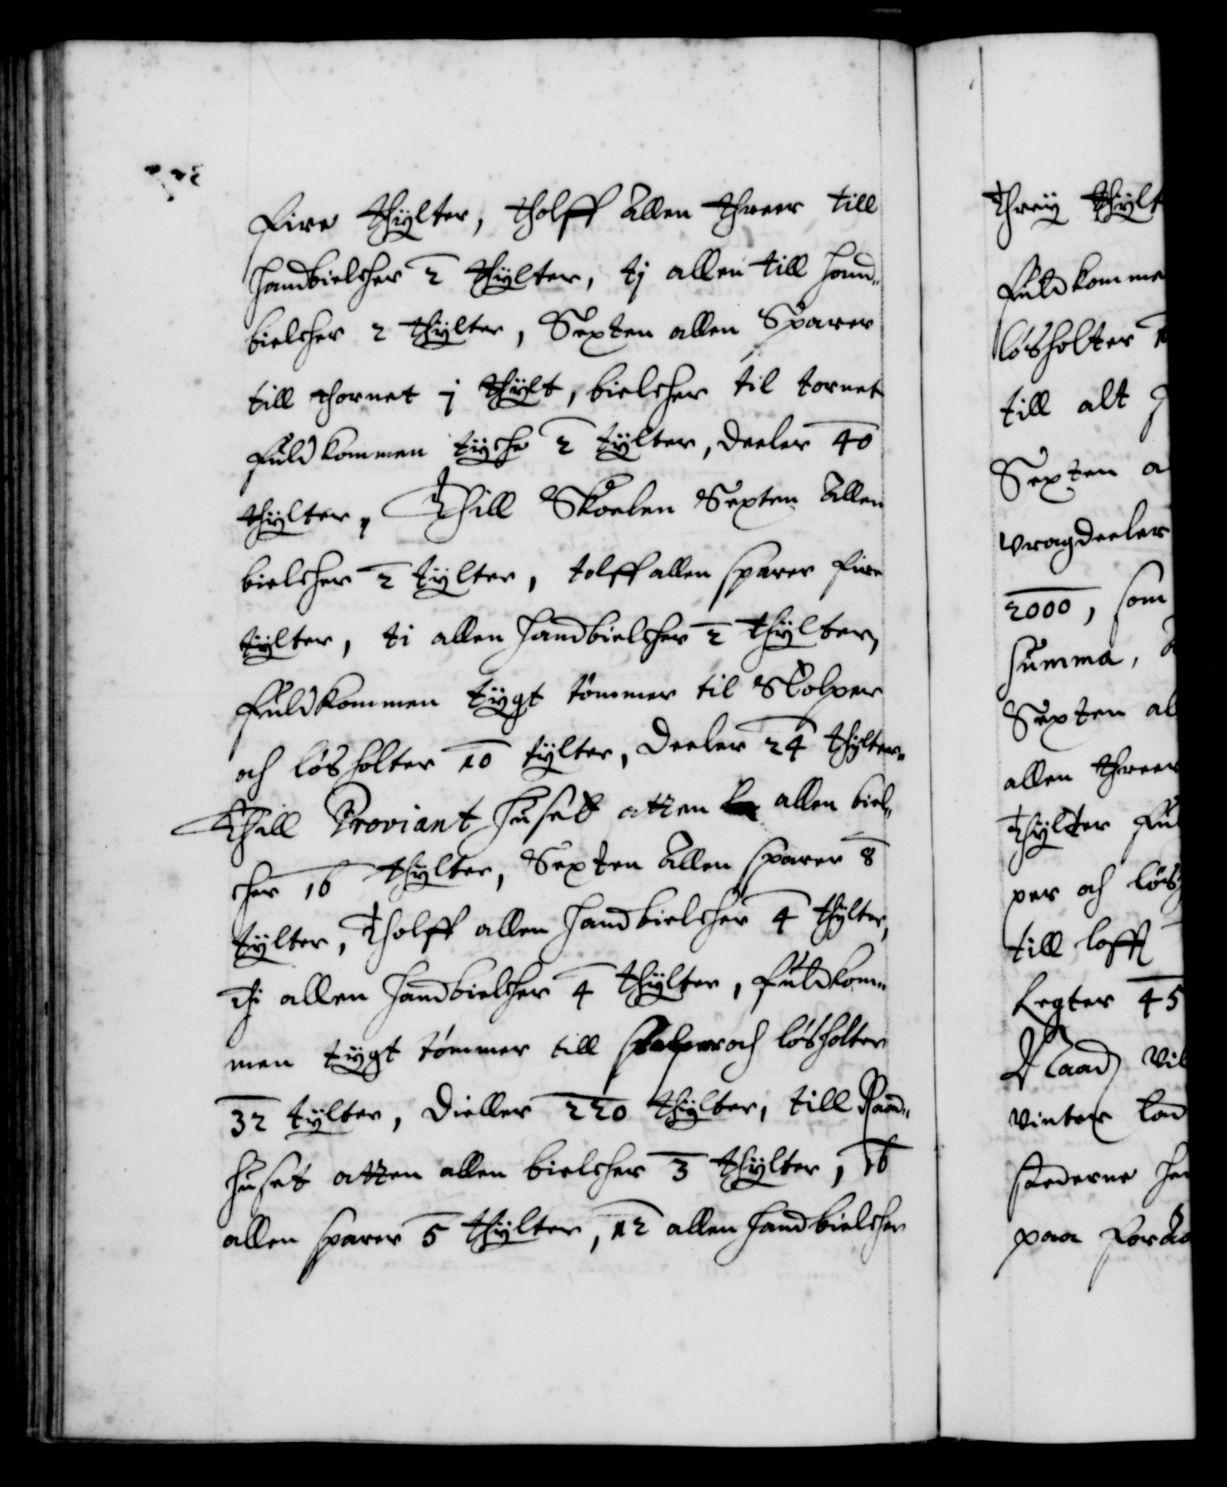 Fire thÿlter, tholff Allen threer till
handbielcher 2 thÿlter, tj allen till hand„
bielcher 2 thÿlter, Sexten allen Sparer
till thornet j thÿlt, bielcher til tornet
fuldkommen tÿche 2 tÿlter, deeler 40
thÿlter, Thill Skoelen Sexten Allen
bielcher 2 tÿlter, tolff allen sparer fire
tÿlter, ti allen handbielcher 2 thÿlter,
fuldkommen tÿgt tømmer til Stolper
och løsholter 10 tÿlter, Deeler 24 thÿlter„
Thill Proviant huset atten allen biel„
cher 16 thÿlter, Sexten Allen sparer 8
tÿlter, Tholff allen handbielcher 4 thÿlter,
Thi allen handbielcher 4 thÿlter, fuldkom„
men tÿgt tømmer till stolper och løsholter
32 tÿlter, Dieller 220 thÿlter, till Raad„
huset atten allen bielcher 3 thÿlter, 16
allen sparer 5 thÿlter, 12 allen handbielcher
Threÿ thÿlt
fuldkomme
løsholter
till alt
Sexten a
vragdeeler
2000, som
summa,
Sexten al
allen threer
thÿlter ful
per och løs
till loff
Legter 45
Raad vil
vinter lad
stederne her
paa for